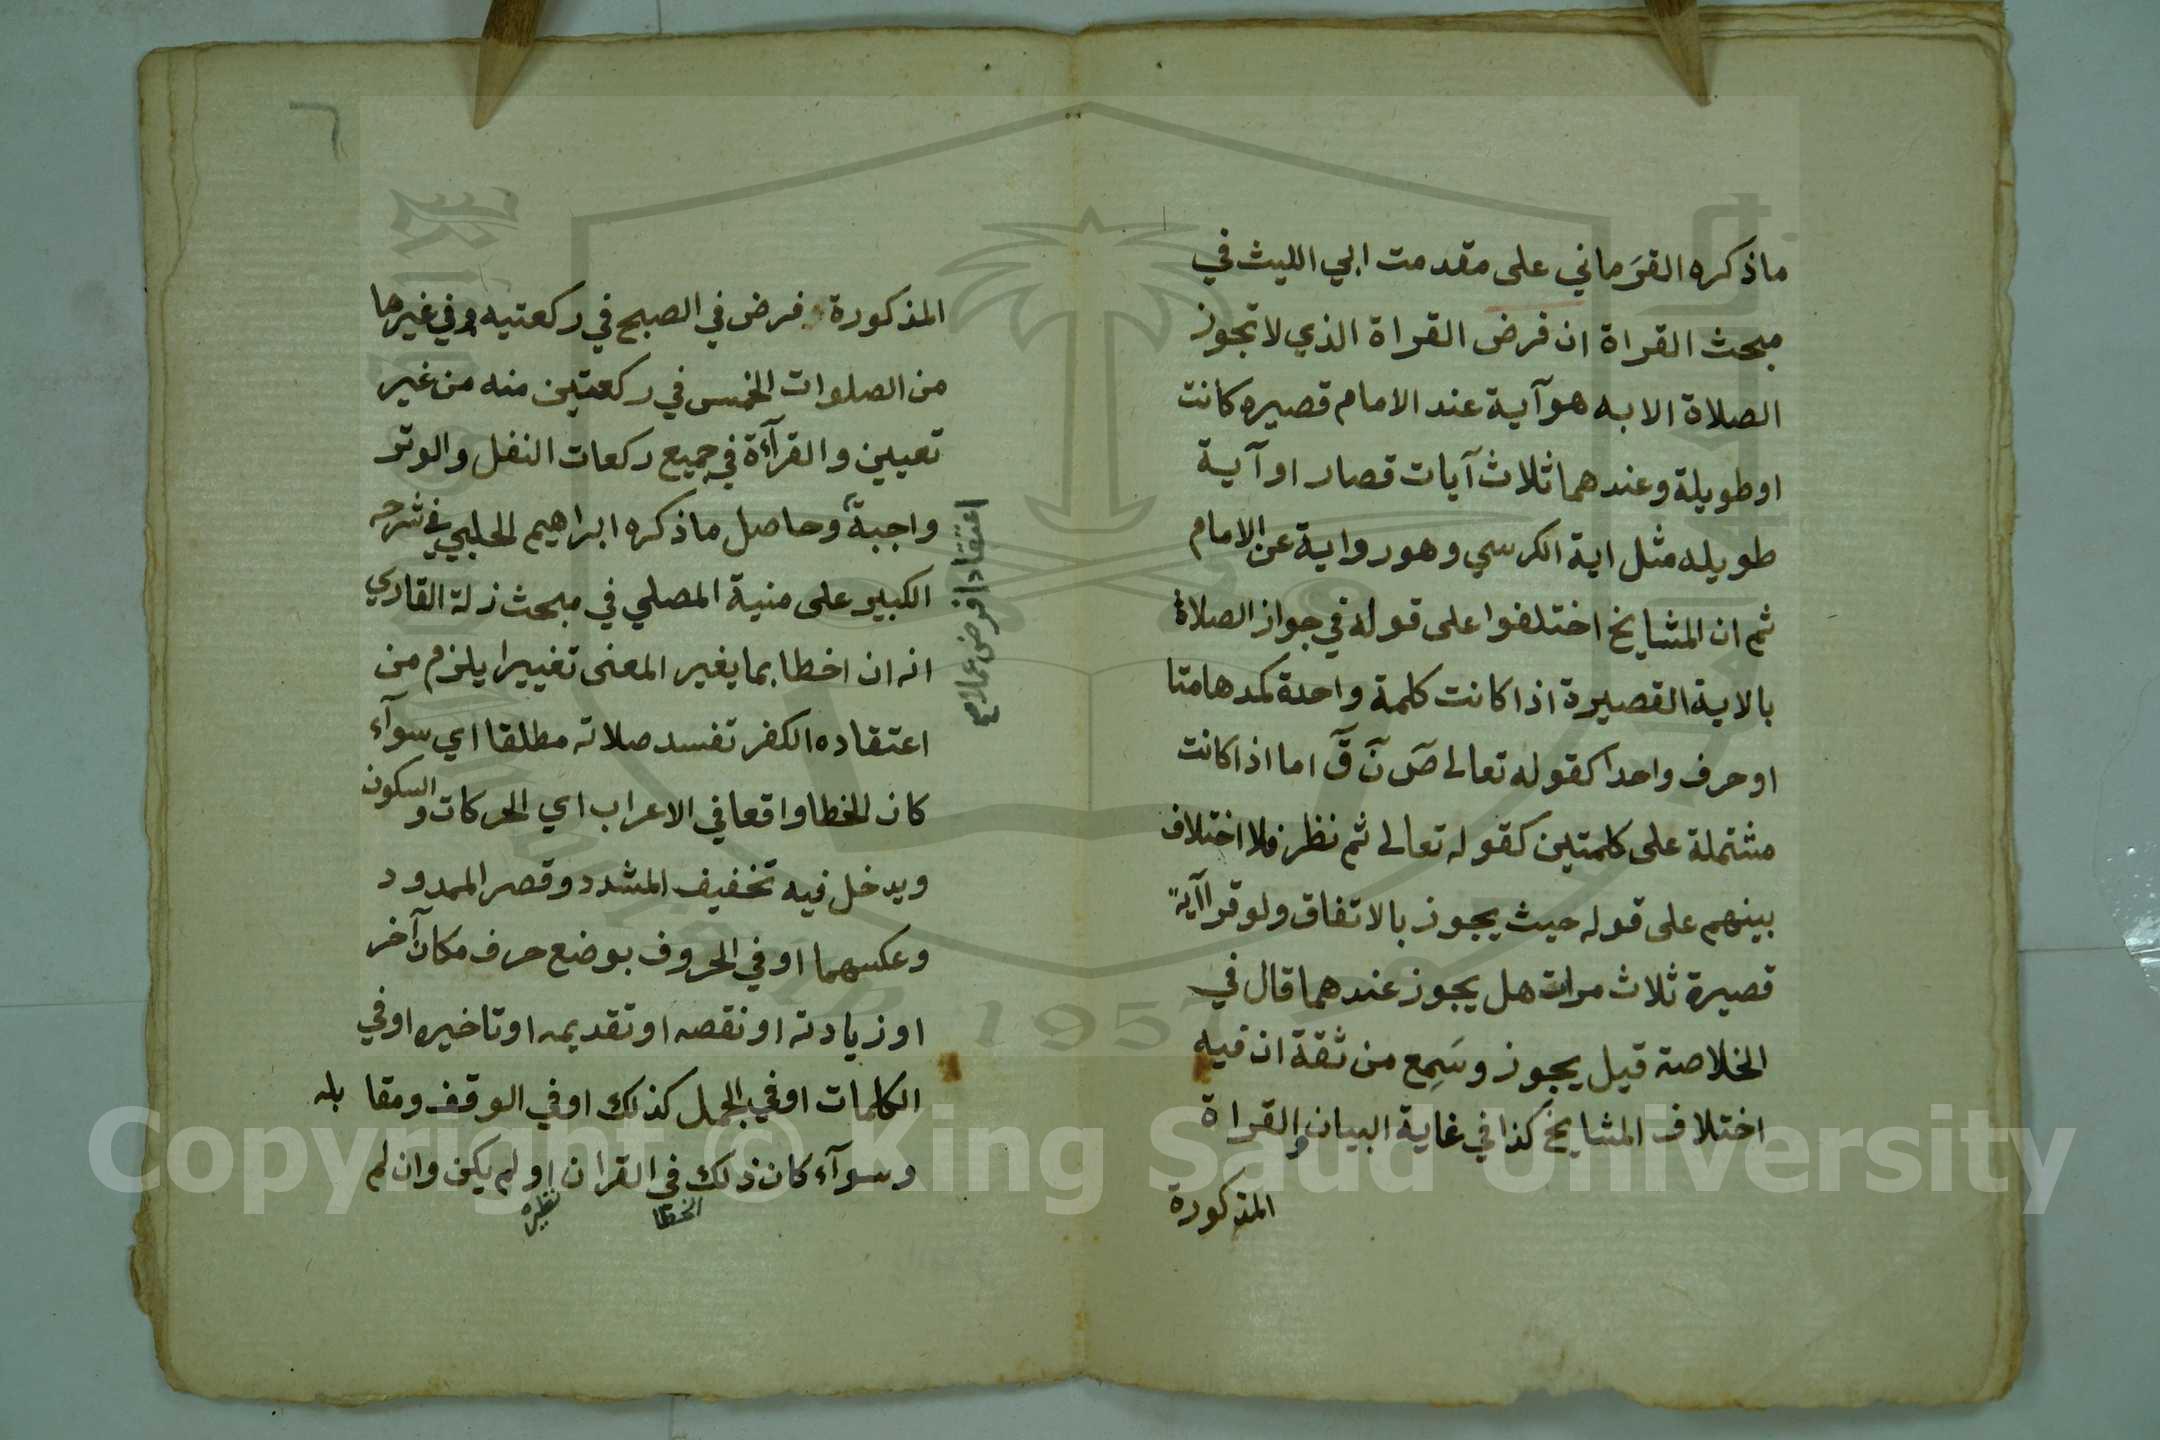 ماذكره القرَماني على مقدمت ابي الليث في
مبحث القراة ان فرض القراة الذي لا تجوز
الصلاة الا به هو آية عند الامام قصيره كانت
او طويلة وعندهما ثلاث آيات قصار او آية
طويله مثل اية الكرسي وهو رواية عن الامام
ثم ان المشايخ اختلفوا على قوله في جواز الصلاة
بالاية القصيرة اذا كانت كلمة واحدة كمدهامتا
او حرف واحدا كقوله تعالى صۤ نۤ قۤ اما اذا كانت
مشتملة على كلمتين كقوله تعالى ثم نظر فلا اختلاف
بينهم على قوله حيث يجوز بالاتفاق ولو قرا آيةً
قصيرة ثلاث مرات هل يجوز عندهما قال في
الخلاصة قيل يجوز وسَمِع من ثقة ان فيه
اختلاف المشايخ كذا في غاية البيان والقراة
المذكورة
٦
المذكورة فرض في الصبح في ركعتيه وفي غيرها
من الصلوات الخمس في ركعتين منه من غير
تعيين والقرآءة في جميع ركعات النفل والوتر
واجبة وحاصل ما ذكره ابراهيم الحلبي في شرحه
الكبير على منية المصلي في مبحث زلة القاري
انه ان اخطا بما يغير المعنى تغييرا يلزم من
اعتقاده الكفر تفسد صلاته مطلقا اي سوآء
كان الخطا واقعا في الاعراب اي الحركات والسكون
ويدخل فيه تخفيف المشدد وقصر الممدود
وعكسهما او في الحروف بوضع حرف مكان آخر
او زيادته او نقصه او تقديمه او تاخيره او في
الكلمات او في الجمل كذلك او في الوقف ومقابله
وسوآء كان ذلك في القران او لم يكن وان لم
الخطا
نظيره
اعتقادا فرض عملا م
Copyright © King Saud University
1957